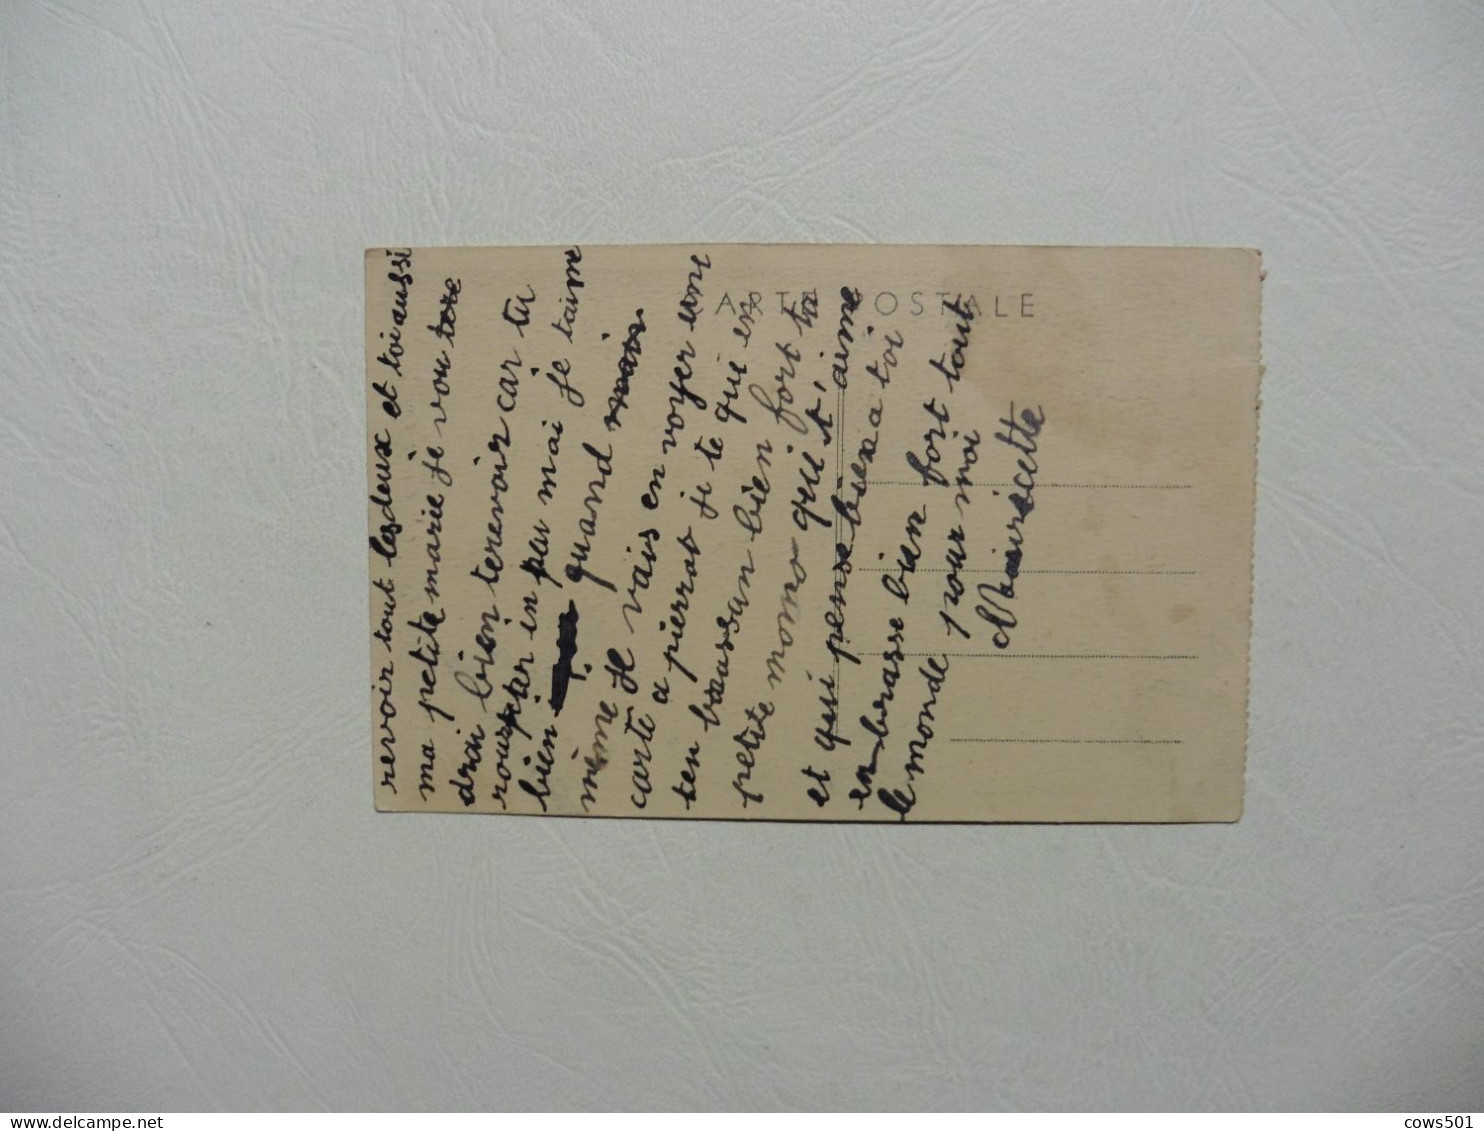 CARTE POSTALE
revoir tout les deux et toi aussi
ma petite marie je vou
drai bien terevoir car tu
in per mai je taime
bien quand
mème Je vais en voyer une
carte a pierrot je te qui en
ten brassan bien fort ta
petite momo qui t'aime
et qui pense bien a toi
en brasse bien fort tout
le monde pour moi
cows501